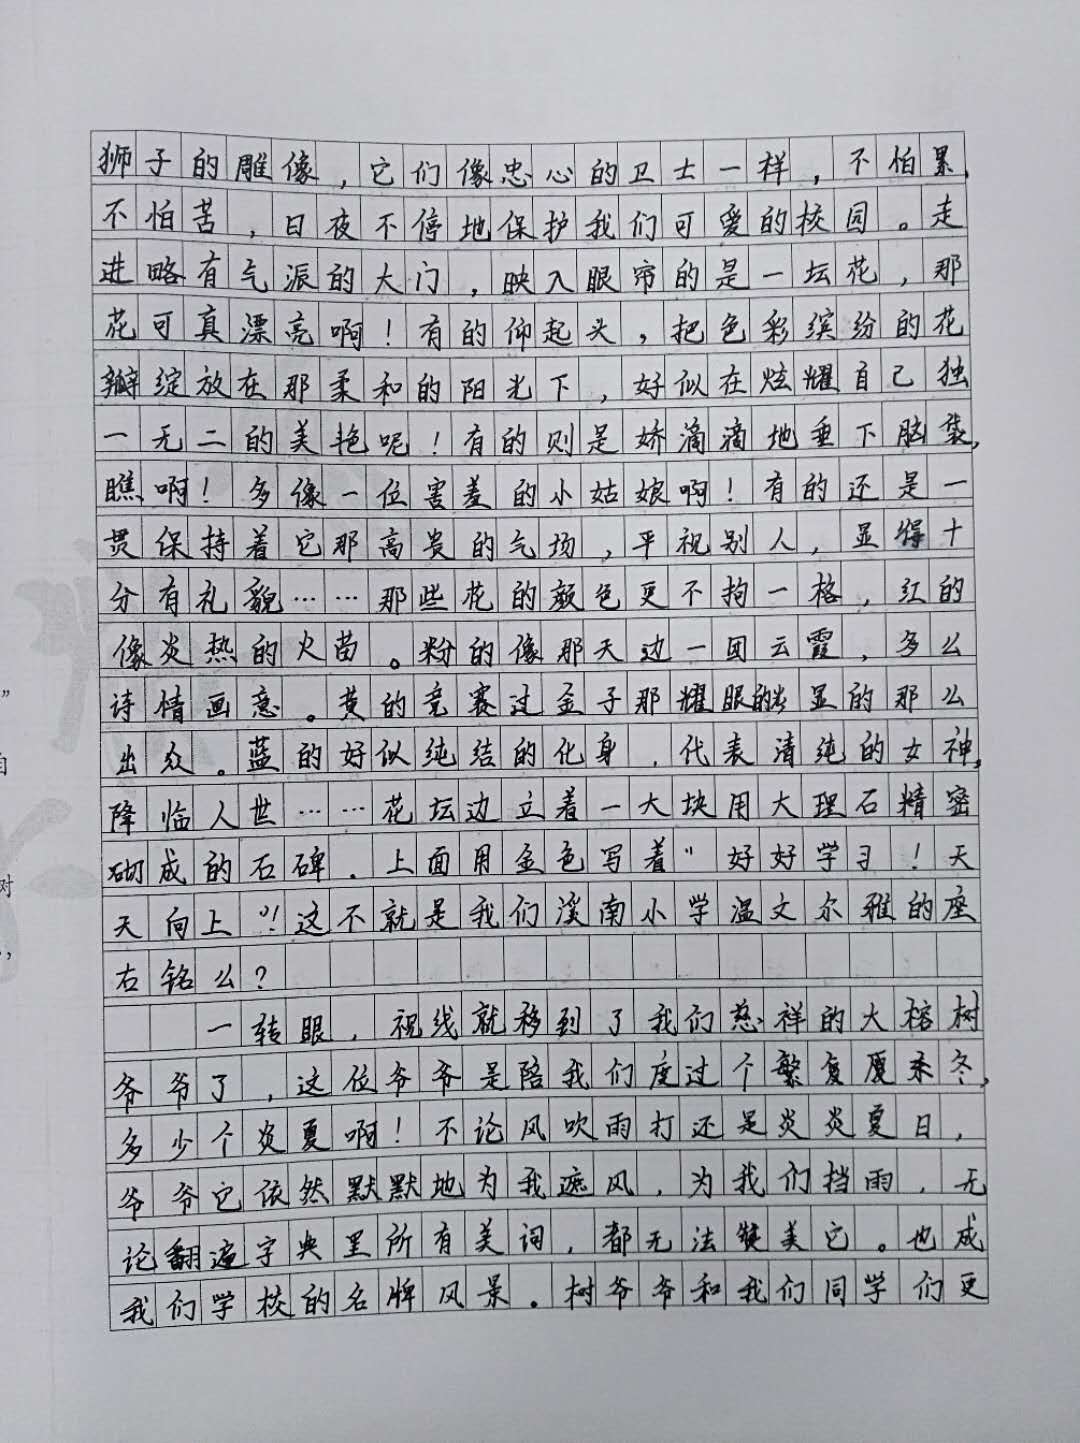 狮子的雕像，它们像忠心的卫士一样，不怕累，
不怕苦，日夜不停地保护我们可爱的校园。走
进略有气派的大门，映入眼帘的是一坛花，那
花可真漂亮啊！有的仰起头，把色彩缤纷的花
瓣绽放在那柔和的阳光下，好似在炫耀自己独
一无二的美艳呢！有的则是娇滴滴地垂下脑袋，
瞧啊！多像一位害羞的小姑娘啊！有的还是一
贯保持着它那高贵的气场，平视别人，显得十
分有礼貌……那些花的颜色更不拘一格，红的
像炎热的火苗。粉的像那天边一团云霞，多么
诗情画意。黄的竞赛过金子那耀眼的光显的那么
出众。蓝的好似纯结的化身，代表清纯的女神，
降临人世……花坛边立着一大块用大理石精密
砌成的石碑．上面用金色写着“好好学习！天
天向上”！这不就是我们溪南小学温文尔雅的座
右铭么？
一转眼，视线就移到了我们慈祥的大榕树
爷爷了，这位爷爷是陪我们度过个繁复厦禾冬，
多少个炎夏啊！不论风吹雨打还是炎炎夏日，
爷爷它依然默默地为我遮风，为我们挡雨，无
论翻遍字典里所有美词，都无法赞美它。也成
我们学校的名牌风景。树爷爷和我们同学们更
”
自
对
，